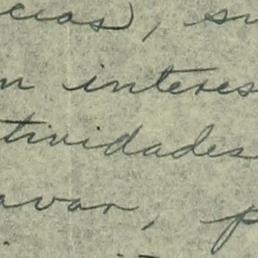 cias, su
n interes
tividades
avar, p